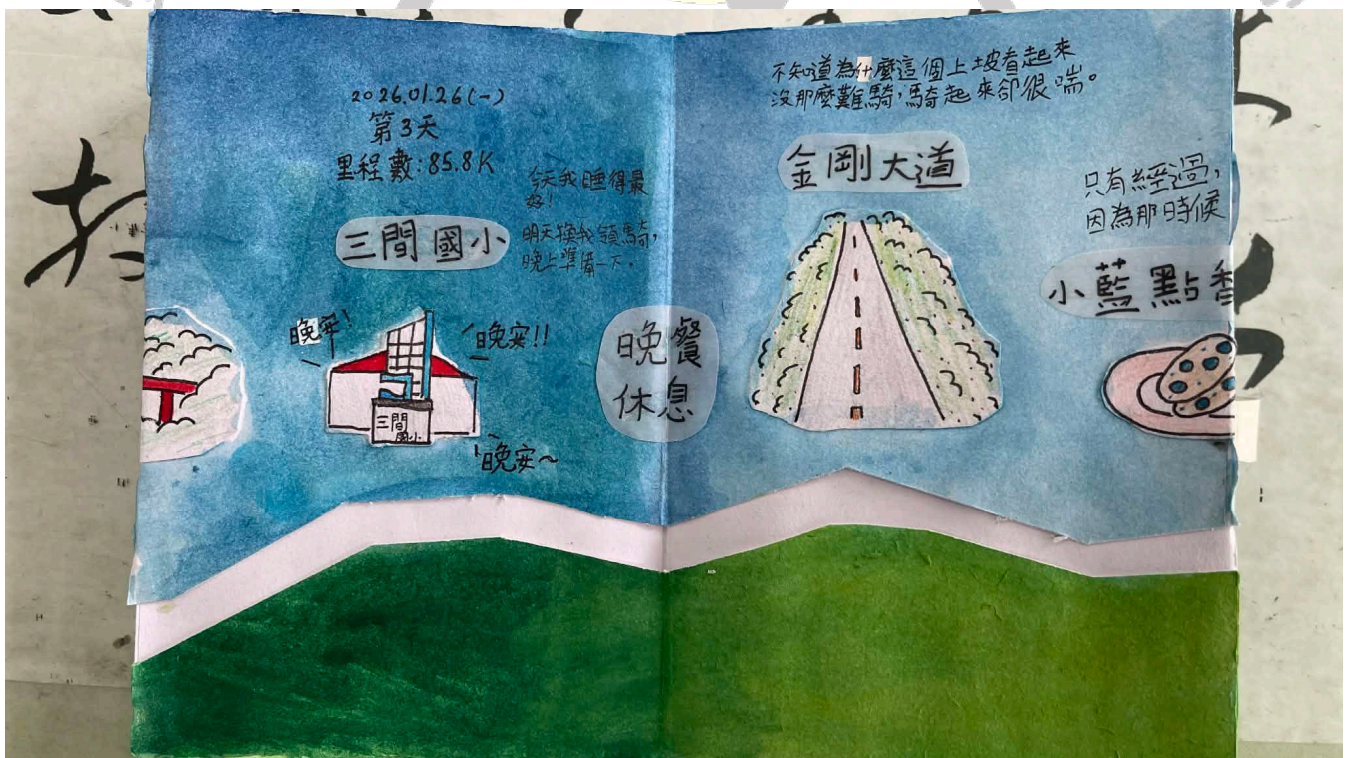 2026.01.26(一)
第3天
里程數:85.8K
今天我睡得最
好!
明天換我領騎,
晚上準備一下。
三間國小
晚安!
晚安!!
三間
國小
晚安~
晚餐
休息
不知道為什麼這個上坡看起來
沒那麼難騎,騎起來卻很喘。
金剛大道
只有經過,
因為那時候
小藍點香